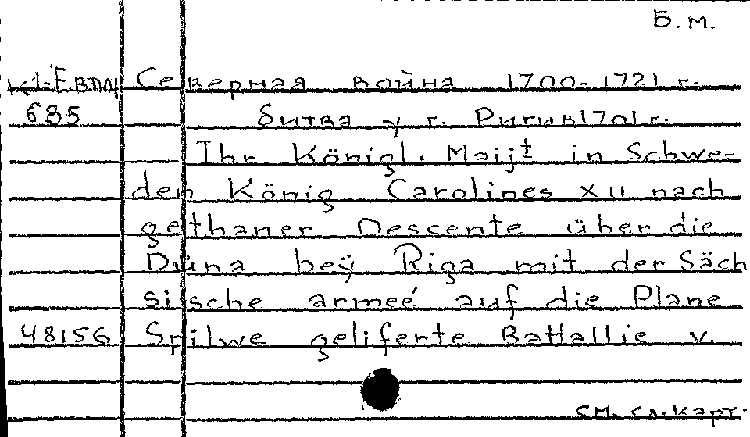 Б.М.
К1-Евпд Северная война 1700-1721 г.
685 битва у г. Риги в 1701 г.
Ihr Königl. Maijt in Schwe-
den König Carolines XII nach
gethaner Descente über die
Düna beÿ Riga mit der Säch
sische armeé auf die Plane
48156 Spilwe geliferte Battallie v.
см. сл. карт.